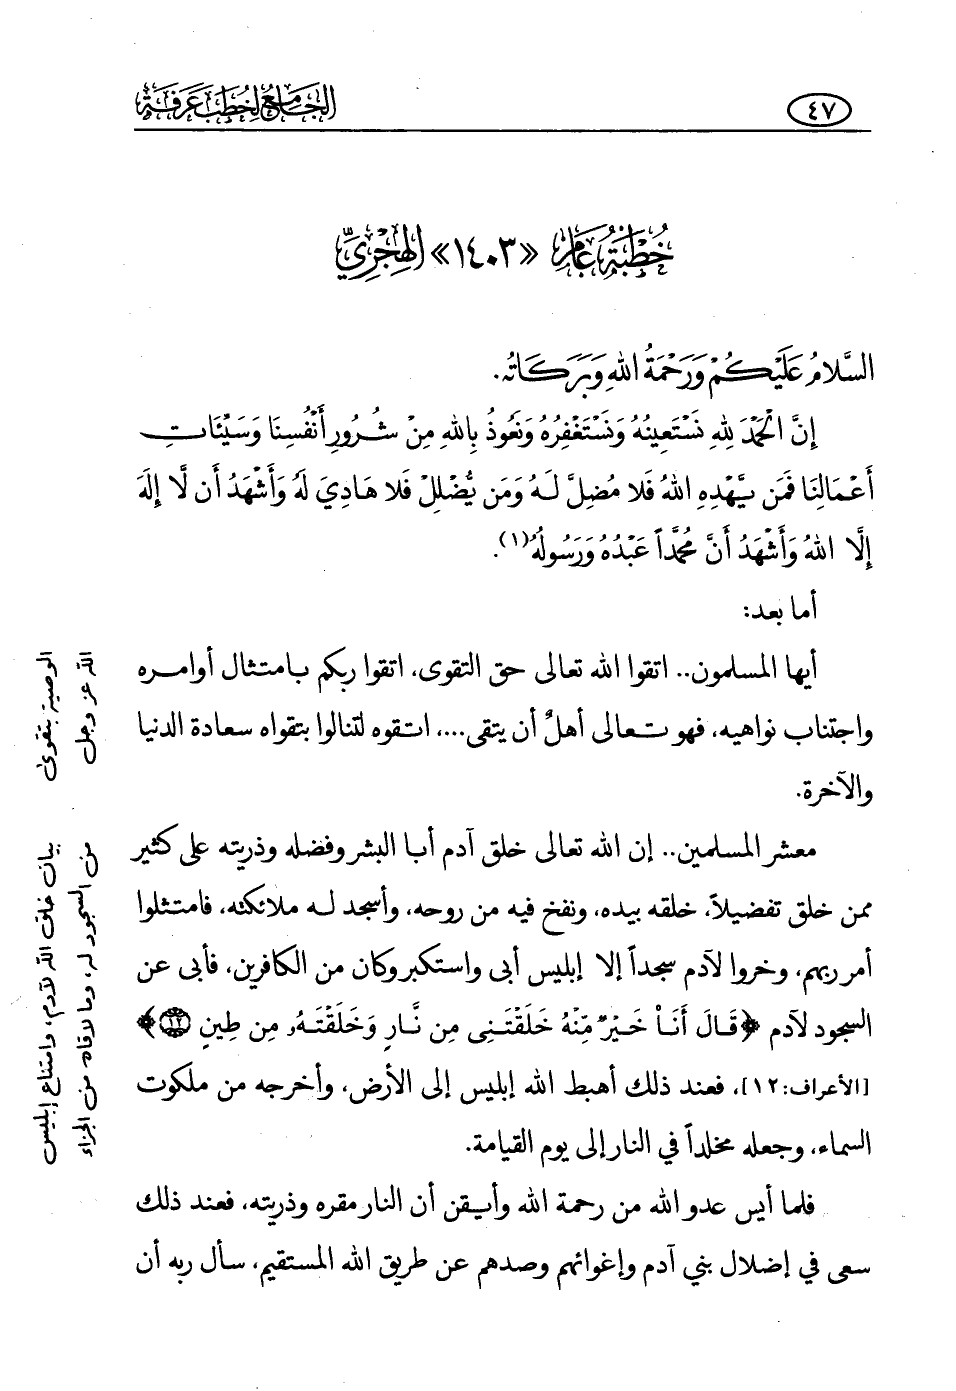 ٤٧
الجامع لخطب عرفة
خُطْبَةُ عَامِ «١٤٠٣» الهِجْرِيِّ
السَّلَامُ عَلَيْكُمْ وَرَحْمَةُ اللهِ وَبَرَكَاتُه.
إِنَّ الْحَمْدَ لِلهِ نَسْتَعِينُهُ وَنَسْتَغْفِرُهُ وَنَعُوذُ بِاللهِ مِنْ شُرُورِ أَنْفُسِنَا وَسَيْئَاتِ
أَعْمَالِنَا فَمَن يَهْدِهِ اللهُ فَلَا مُضِلَّ لَهُ وَمَن يُضْلِلْ فَلَا هَادِيَ لَهُ وَأَشْهَدُ أَن لَّا إِلَهَ
إِلَّا اللهُ وَأَشْهَدُ أَنَّ مُحَمَّداً عَبْدُهُ وَرَسُولُهُ(١).
أما بعد:
أيها المسلمون.. اتقوا الله تعالى حق التقوى، اتقوا ربكم بامتثال أوامره
واجتناب نواهيه، فهو تعالى أهلٌ أن يتقى...، اتقوه لتنالوا بتقواه سعادة الدنيا
والآخرة.
معشر المسلمين.. إن الله تعالى خلق آدم أبا البشر وفضله وذريته على كثير
ممن خلق تفضيلاً، خلقه بيده، ونفخ فيه من روحه، وأسجد له ملائكته، فامتثلوا
أمر ربهم، وخروا لآدم سجداً إلا إبليس أبى واستكبر وكان من الكافرين، فأبى عن
السجود لآدم ﴿قَالَ أَنَا۠ خَيْرٌ مِّنْهُ خَلَقْتَنِى مِن نَّارٍ وَخَلَقْتَهُۥ مِن طِينٍ ١٢﴾
[الأعراف:١٢]، فعند ذلك أهبط الله إبليس إلى الأرض، وأخرجه من ملكوت
السماء، وجعله مخلداً في النار إلى يوم القيامة.
فلما أيس عدو الله من رحمة الله وأيقن أن النار مقره وذريته، فعند ذلك
سعى في إضلال بني آدم وإغوائهم وصدهم عن طريق الله المستقيم، سأل ربه أن
الوصية بتقوىٰ
الله عز وجل
بيان خلق الله لآدم، وامتناع إبليس
من السجود له، وما لاقاه من الجزاء